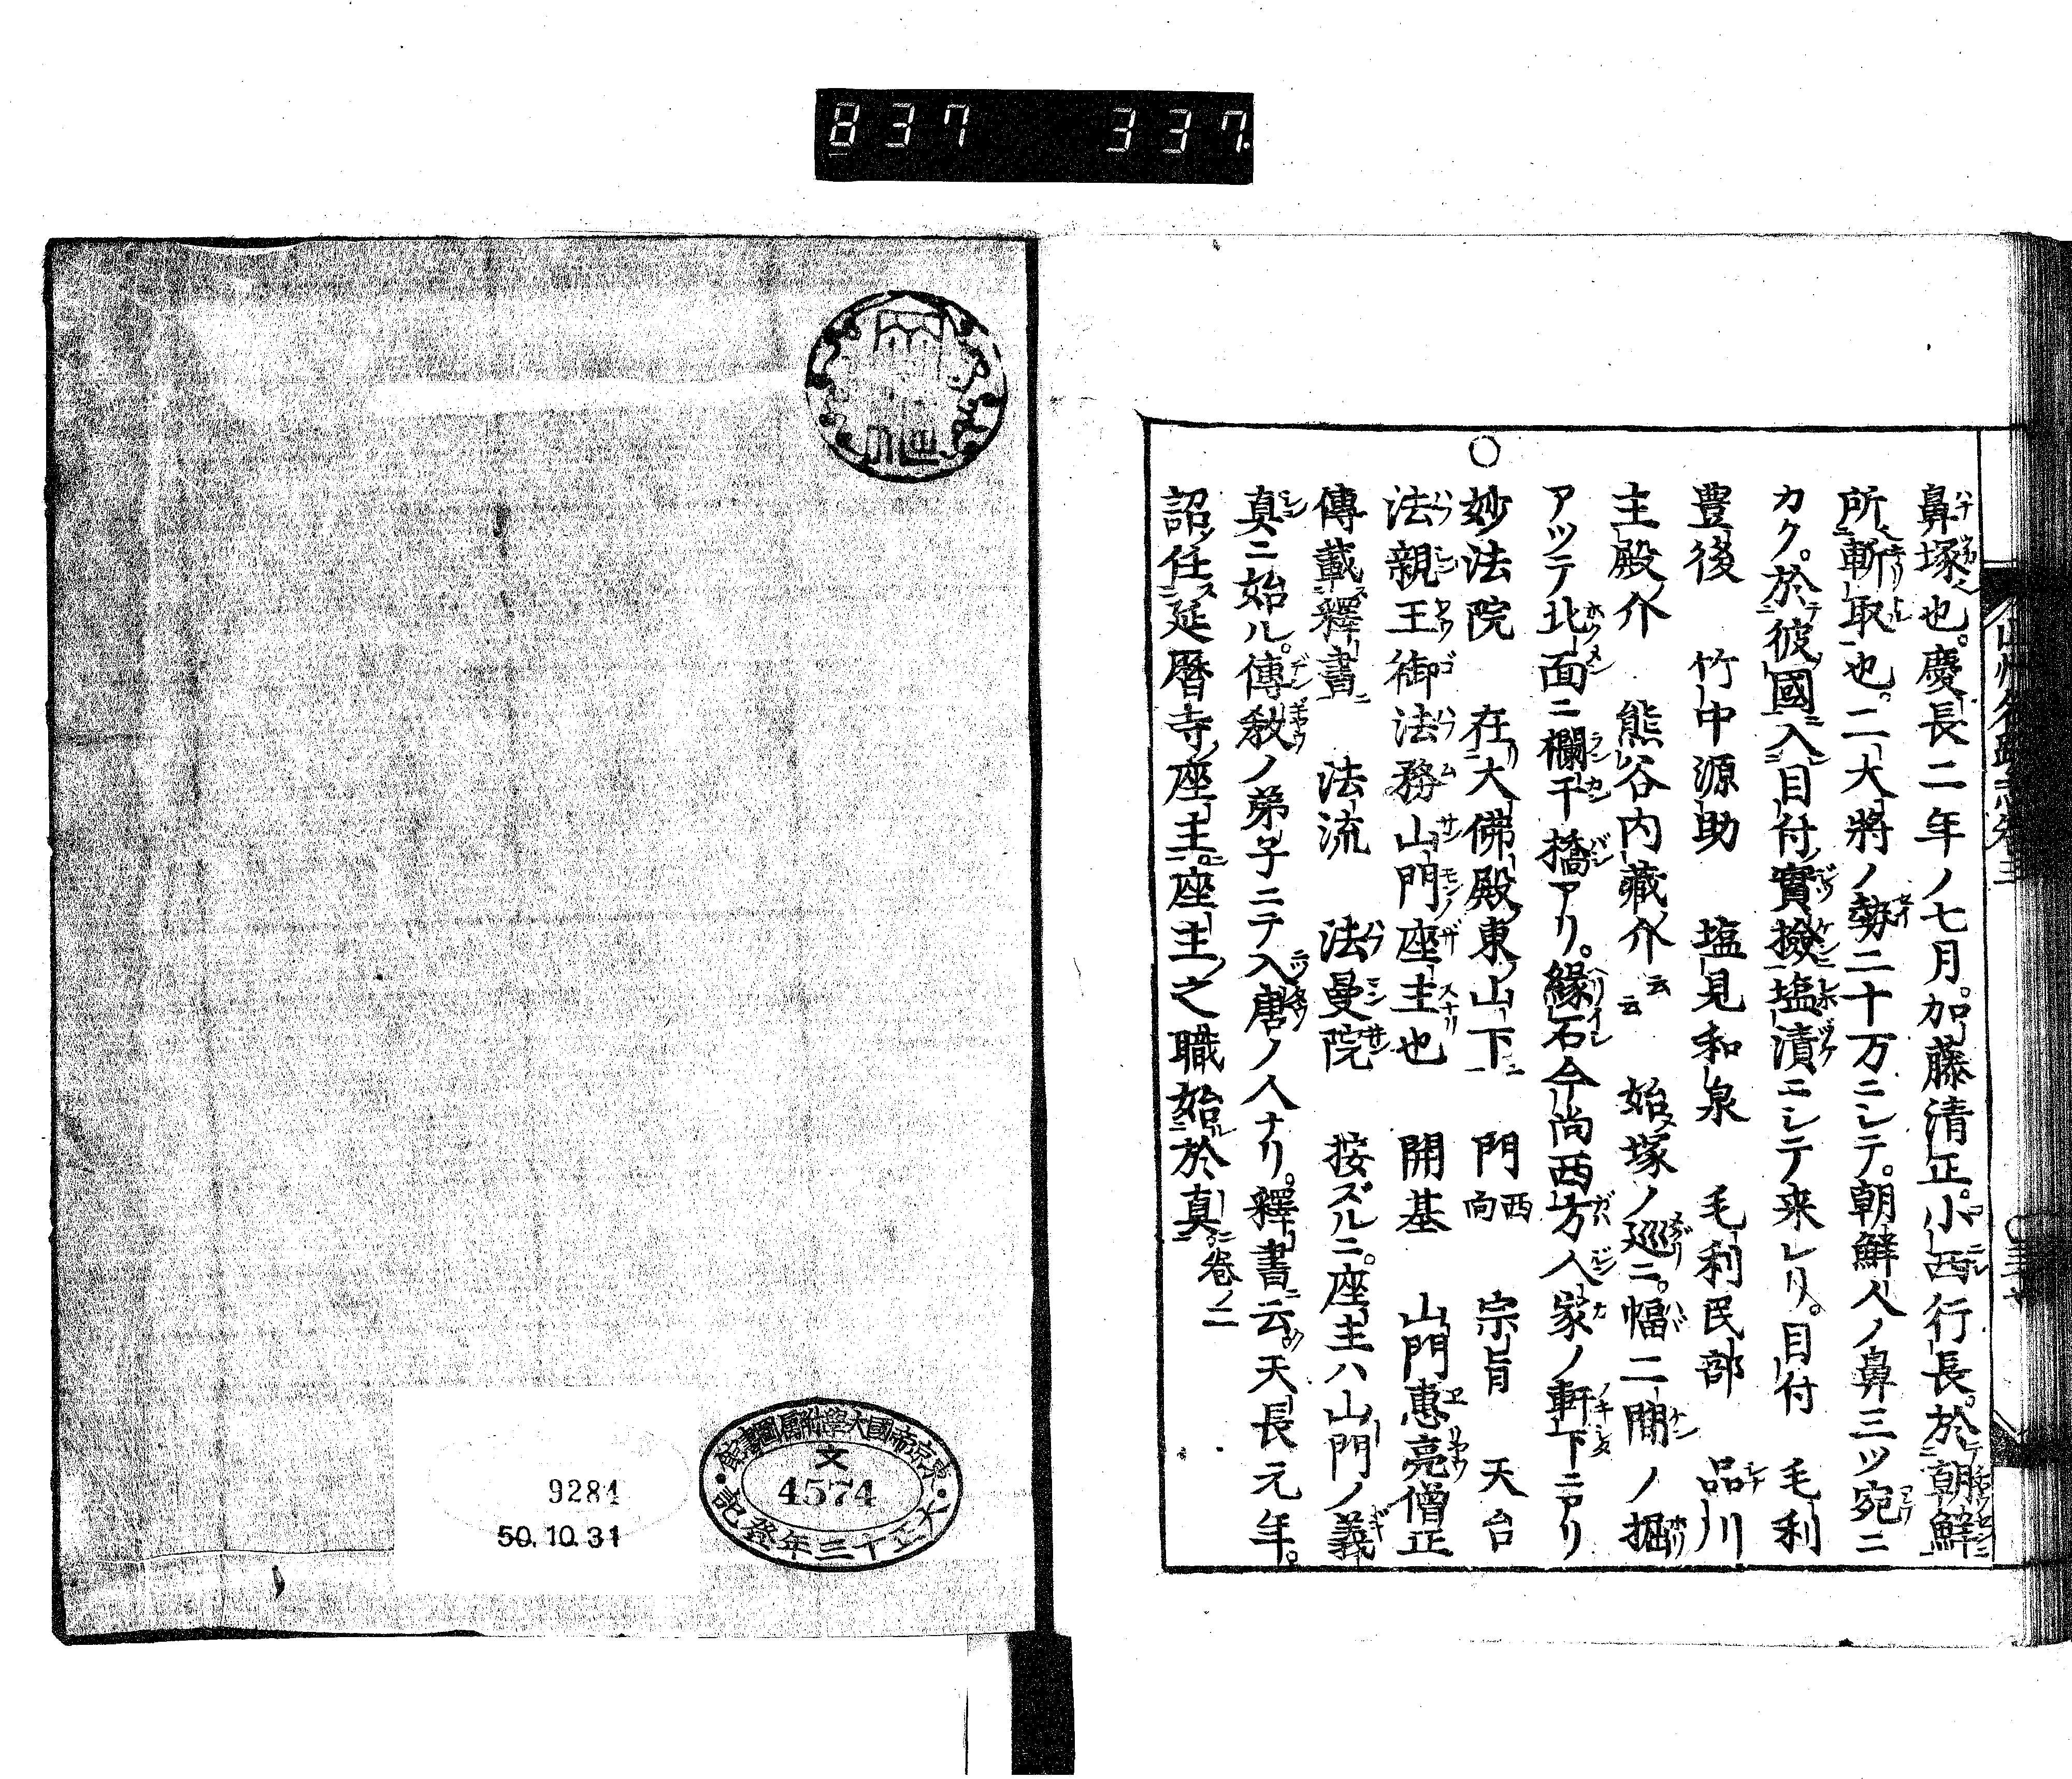 837 337
鼻塚也。慶長二年ノ七月。加藤清正。小西行長。於朝鮮
所斬取也。二大將ノ勢二十万ニシテ。朝鮮人ノ鼻三ツ宛ニ
カク。於彼國入目付實撿塩漬ニシテ来レリ。目付 毛利
豊後 竹中源助 塩見和泉 毛利民部 品川
主殿介 熊谷内藏介云云 始塚ノ巡ニ。幅二間ノ堀
アツテ北面ニ欄干橋アリ。縁石今尚西方人家ノ軒下ニアリ
○妙法院 在大佛殿東山下 門西向 宗旨 天台
法親王御法務山門座主也 開基 山門惠亮僧正
傳載釋書 法流 法曼院 按ズルニ。座主ハ山門ノ義
真ニ始ル。傳教ノ弟子ニテ入唐ノ人ナリ。釋書云。天長元年。
詔任延暦寺座主。座主之職始於真。卷ノ二
東京帝國大學附屬圖書館
文
4574
大正十三年登記
9284
50.10.31